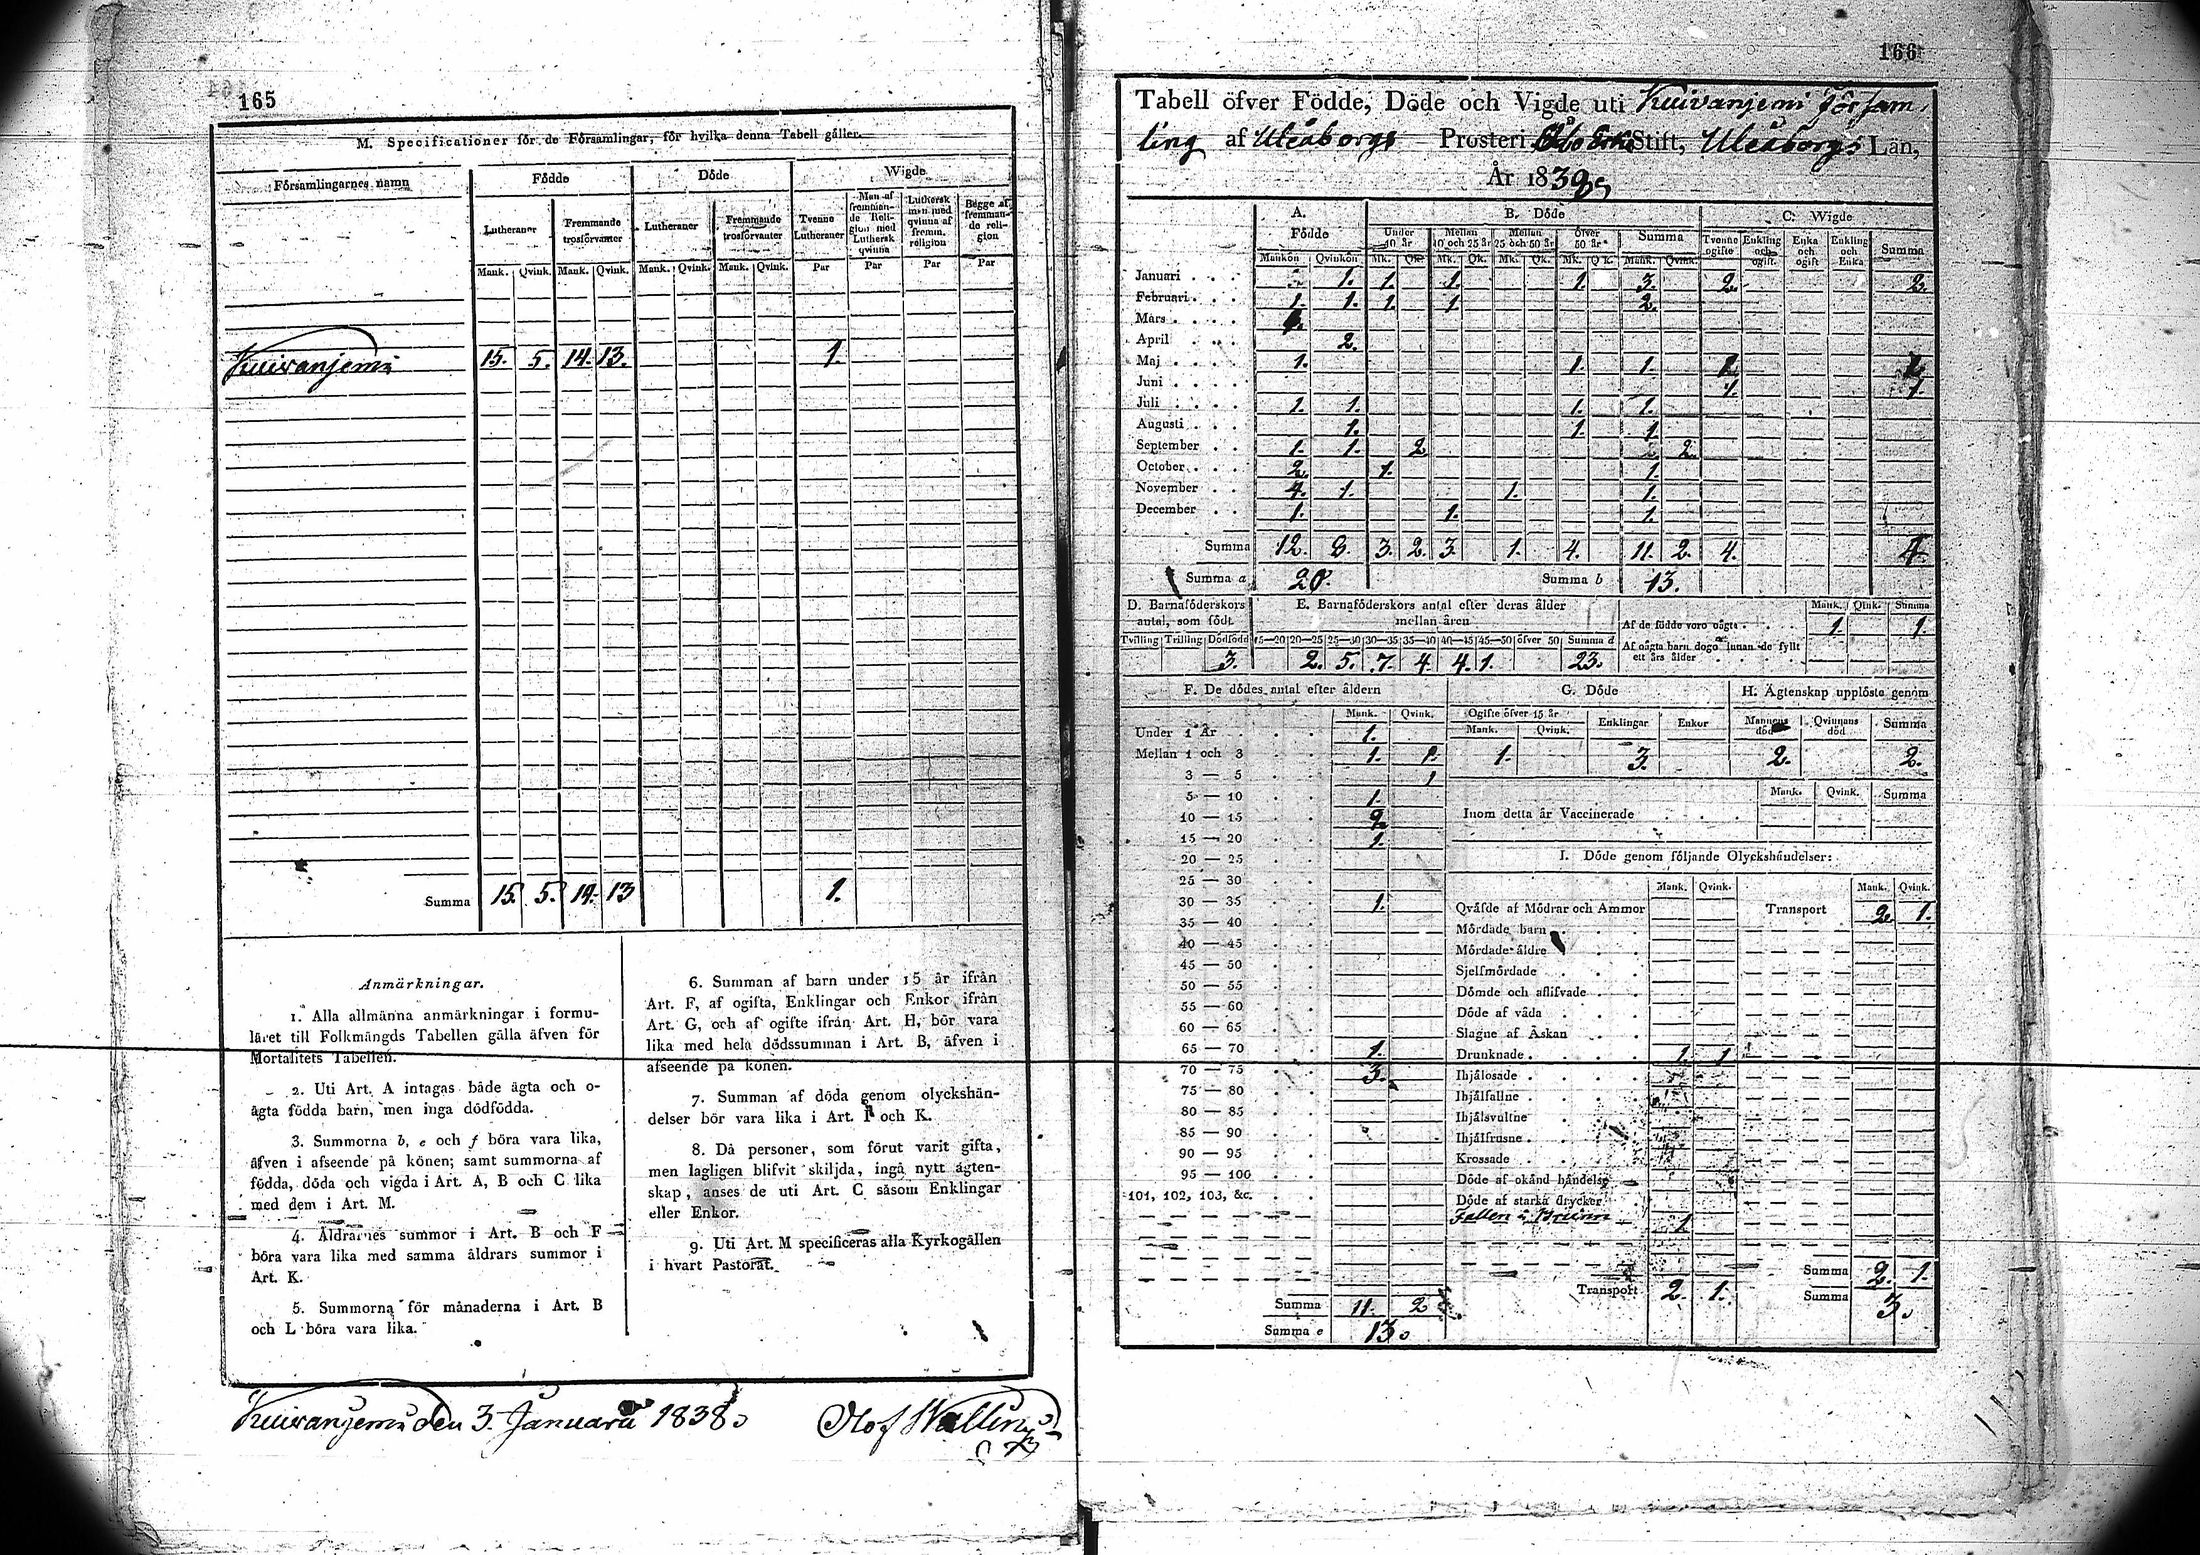 165
M. Specificationer för de Församlingar, för hvilka denna Tabell gäller.
Församlingarnes namn Födde Döde Wigde
Lutheraner Fremmande trosförvanter Lutheraner Fremmande trosförvanter Tvenne Lutheraner Man af fremmande Religion med Luthersk qvinna Luthersk man med qvinna af fremm. religion Begge af fremmande religion
Mank. Qvink. Mank. Qvink. Mank. Qvink. Mank. Qvink. Par Par Par Par
Kuivanjemi 15. 5. 14. 13. 1.
Summa 15. 5. 14. 13 1.
Anmärkningar.
1. Alla allmänna anmärkningar i formu-
läret till Folkmängds Tabellen gälla äfven för
Mortalitets Tabellen.
2. Uti Art. A intagas både ägta och o-
ägta födda barn, men inga dödfödda.
3. Summorna b, e och f böra vara lika,
äfven i afseende på könen; samt summorna af
födda, döda och vigda i Art. A, B och C lika
med dem i Art. M.
4. Åldrarnes summor i Art. B och F
böra vara lika med samma åldrars summor i
Art. K.
5. Summorna för månaderna i Art. B
och L böra vara lika.
6. Summan af barn under 15 år ifrån
Art. F, af ogifta, Enklingar och Enkor ifrån
Art. G, och af ogifte ifrån Art. H, bör vara
lika med hela dödssumman i Art. B, äfven i
afseende på könen.
7. Summan af döda genom olyckshän-
delser bör vara lika i Art. I och K.
8. Då personer, som förut varit gifta,
men lagligen blifvit skiljda, ingå nytt ägten-
skap, anses de uti Art. C såsom Enklingar
eller Enkor.
9. Uti Art. M specificeras alla Kyrkogällen
i hvart Pastorat.
Kuivanjemi den 3. Januarii 1838. Olof Wallin
166
Tabell öfver Födde, Döde och Vigde uti Kuivanjemi Försam-
ling af Uleåborgs Prosteri Stift, Uleåborgs Län,
År 183
A. Födde B. Döde C. Wigde
Under 10 år Mellan 10 och 25 år Mellan 25 och 50 år öfver 50 år Summa Tvenne ogifte Enkling och ogift. Enka och ogift Enkling och Enka Summa
Mankön Qvinkön Mk. Qk. Mk. Qk. Mk. Qk. Mk. Qk. Mank. Qvink.
Januari 1. 1. 1. 1. 3. 2. 2.
Februari 1. 1. 1. 1. 2.
Mars
April 2.
Maj 1. 1. 1.
Juni 1. 1.
Juli 1. 1. 1. 1.
Augusti 1. 1. 1
September 1. 1. 2 2.
October 2. 1. 1.
November 4. 1. 1. 1.
December 1. 1. 1.
Summa 12. 8. 3. 2. 3. 1. 4. 11. 2. 4. 4.
Summa a 20. Summa b 13.
D. Barnaföderskors antal, som födt E. Barnaföderskors antal efter deras ålder mellan åren Mank. Qink. Summa
Af de födde voro oägta 1. 1.
Tvilling Trilling Dödfödd 15—20 20—25 25—30 30—35 35—40 40—45 45—50 öfver 50 Summa d
Af oägta barn dogo innan de fyllt ett års ålder
3. 2. 5. 7. 4. 4. 1. 23.
F. De dödes antal efter åldern G. Döde H. Ägtenskap upplöste genom
Mank. Qvink. Ogifte öfver 15 år Mank. Qvink. Enklingar Enkor Mannens död Qvinnans död Summa
Under 1 År 1.
Mellan 1 och 3 1. 1. 1. 3. 2. 2.
3 — 5 1
5 — 10 1.
10 — 15 2
15 — 20 1.
20 — 25
25 — 30
30 — 35 1.
35 — 40
40 — 45
45 — 50
50 — 55
55 — 60
60 — 65
65 — 70 1.
70 — 75 3.
75 — 80
80 — 85
85 — 90
90 — 95
95 — 100
101, 102, 103, &c.
Summa 11. 2
Summa e 13.
Mank. Qvink. Summa
Inom detta år Vaccinerade
I. Döde genom följande Olyckshändelser:
Mank. Qvink. Mank. Qvink.
Qväfde af Mödrar och Ammor Transport 2. 1.
Mördade barn
Mördade äldre
Sjelfmördade
Dömde och aflifvade
Döde af våda
Slagne af Åskan
Drunknade 1. 1
Ihjälosade
Ihjälfallne
Ihjälsvultne
Ihjälfrusne
Krossade
Döde af okänd händelse
Döde af starka drycker
Fallen i Brunn 1
Summa 2. 1.
Transport 2. 1. Summa 3.